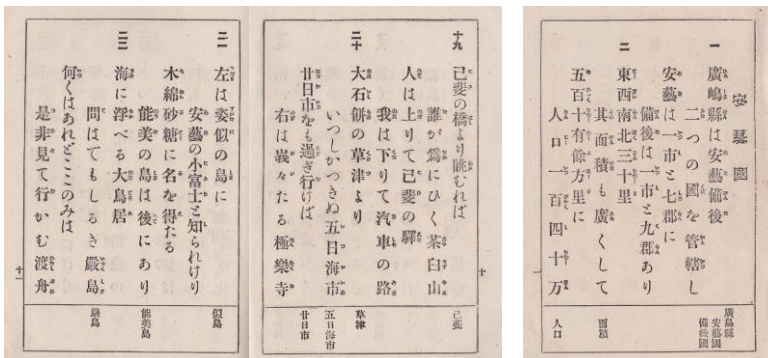 安藝國
一
廣嶋縣は安藝備後
二つの國を管轄し
安藝は一市と七郡に
備後は一市と九郡あり
二
東西南北三十里
其面積も廣くして
五百十有餘方里に
人口一百四十万
廣島縣
安藝國
備後國
面積
人口
一
十九
己斐の橋より眺むれば
誰が爲にひく茶臼山
人は上りて己斐の驛
我は下りて汽車の路
二十
大石餅の草津より
いつしかつきぬ五日海市
廿日市をも過ぎ行けば
右は峩々たる極樂寺
己斐
草津
五日海市
廿日市
十
二一
左は姿似の島に
安藝の小富士と知られけり
木綿砂糖に名を得たる
能美の島は後にあり
二二
海に浮べる大鳥居
問はでもしるき嚴島
何くはあれどこゝのみは
是非見て行かむ渡舟
似島
能美島
嚴島
十一